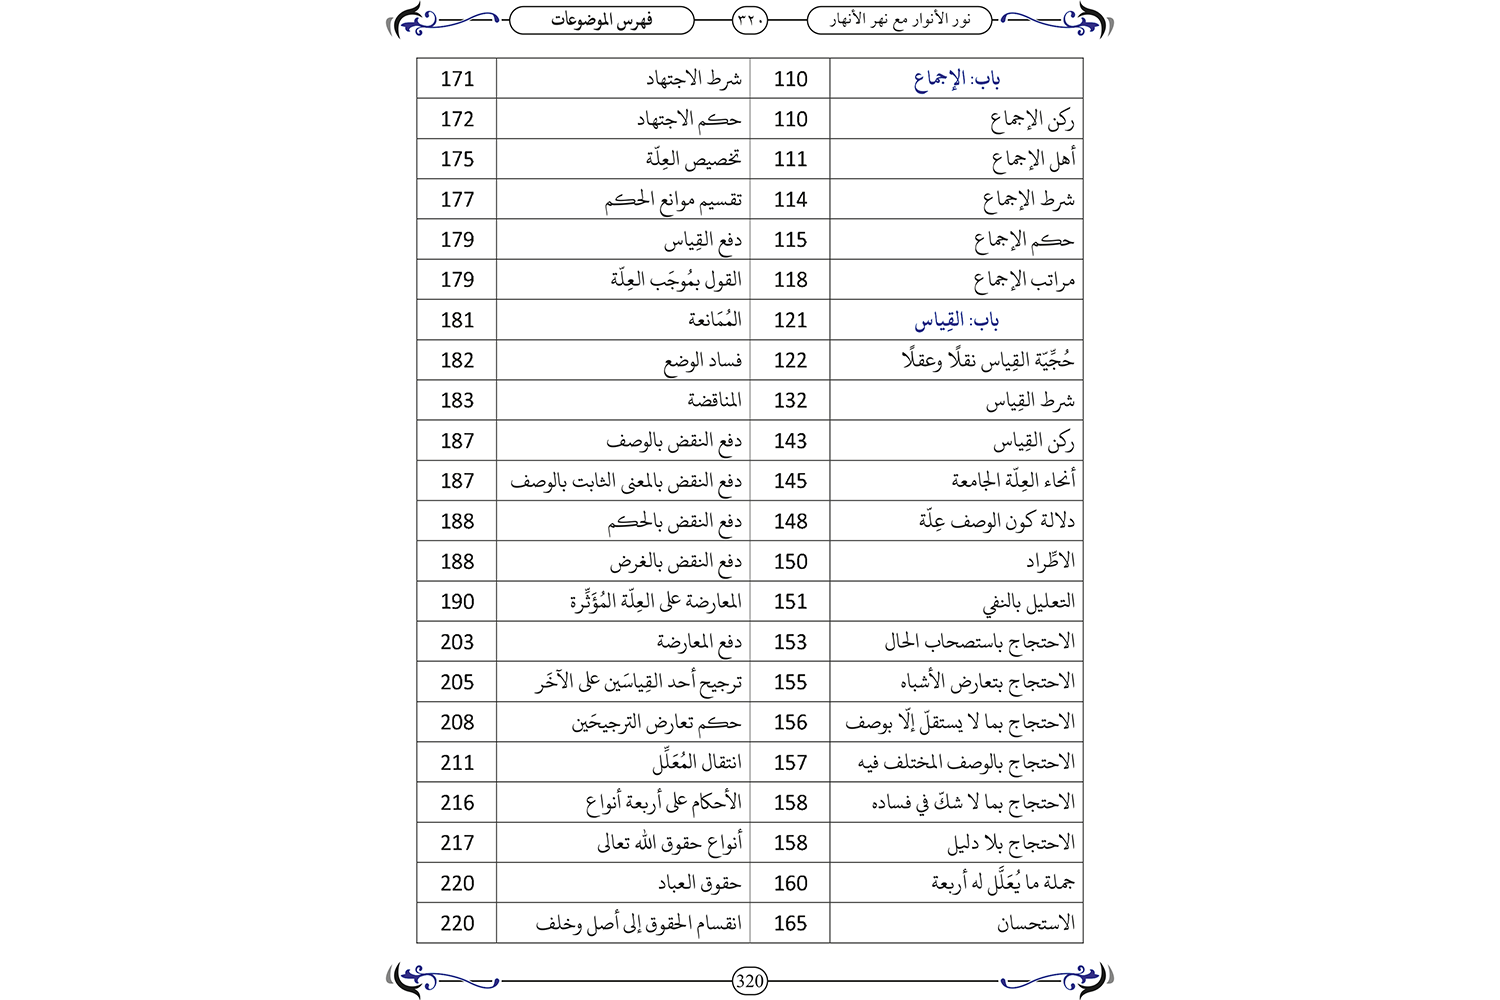 نور الأنوار مع نهر الأنهار
٣٢٠
فهرس الموضوعات
باب: الإجماع 110
ركن الإجماع 110
أهل الإجماع 111
شرط الإجماع 114
حكم الإجماع 115
مراتب الإجماع 118
باب: القِياس 121
حُجِّيّة القِياس نقلًا وعقلًا 122
شرط القِياس 132
ركن القِياس 143
أنحاء العِلّة الجامعة 145
دلالة كون الوصف عِلّة 148
الاطِّراد 150
التعليل بالنفي 151
الاحتجاج باستصحاب الحال 153
الاحتجاج بتعارض الأشباه 155
الاحتجاج بما لا يستقلّ إلّا بوصف 156
الاحتجاج بالوصف المختلف فيه 157
الاحتجاج بما لا شكّ في فساده 158
الاحتجاج بلا دليل 158
جملة ما يُعَلَّل له أربعة 160
الاستحسان 165
شرط الاجتهاد 171
حكم الاجتهاد 172
تخصيص العِلّة 175
تقسيم موانع الحكم 177
دفع القِياس 179
القول بمُوجَب العِلّة 179
المُمَانعة 181
فساد الوضع 182
المناقضة 183
دفع النقض بالوصف 187
دفع النقض بالمعنى الثابت بالوصف 187
دفع النقض بالحكم 188
دفع النقض بالغرض 188
المعارضة على العِلّة المُؤَثِّرة 190
دفع المعارضة 203
ترجيح أحد القِياسَين على الآخَر 205
حكم تعارض الترجيحَين 208
انتقال المُعَلِّل 211
الأحكام على أربعة أنواع 216
أنواع حقوق الله تعالى 217
حقوق العباد 220
انقسام الحقوق إلى أصل وخلف 220
320